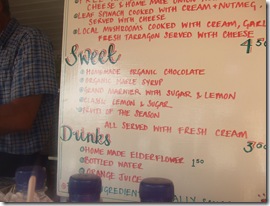 CHEESE & HOME MADE
LEAF SPINACH COOKED WITH CREAM + NUTMEG.
SERVED WITH CHEESE
LOCAL MUSHROOMS COOKED WITH CREAM, GARL
FRESH TARRAGON SERVED WITH CHEESE
4 50
Sweet
HOMEMADE ORGANIC CHOCOLATE
ORGANIC MAPLE SYRUP
GRAND MARNIER WITH SUGAR & LEMON
CLASSIC LEMON & SUGAR
OF THE SEASON
ALL SERVED WITH FRESH CREAM
Drinks
HOME MADE ELDERFLOWER
BOTTLED WATER 1 50
ORANGE JUICE
INGREDIEN